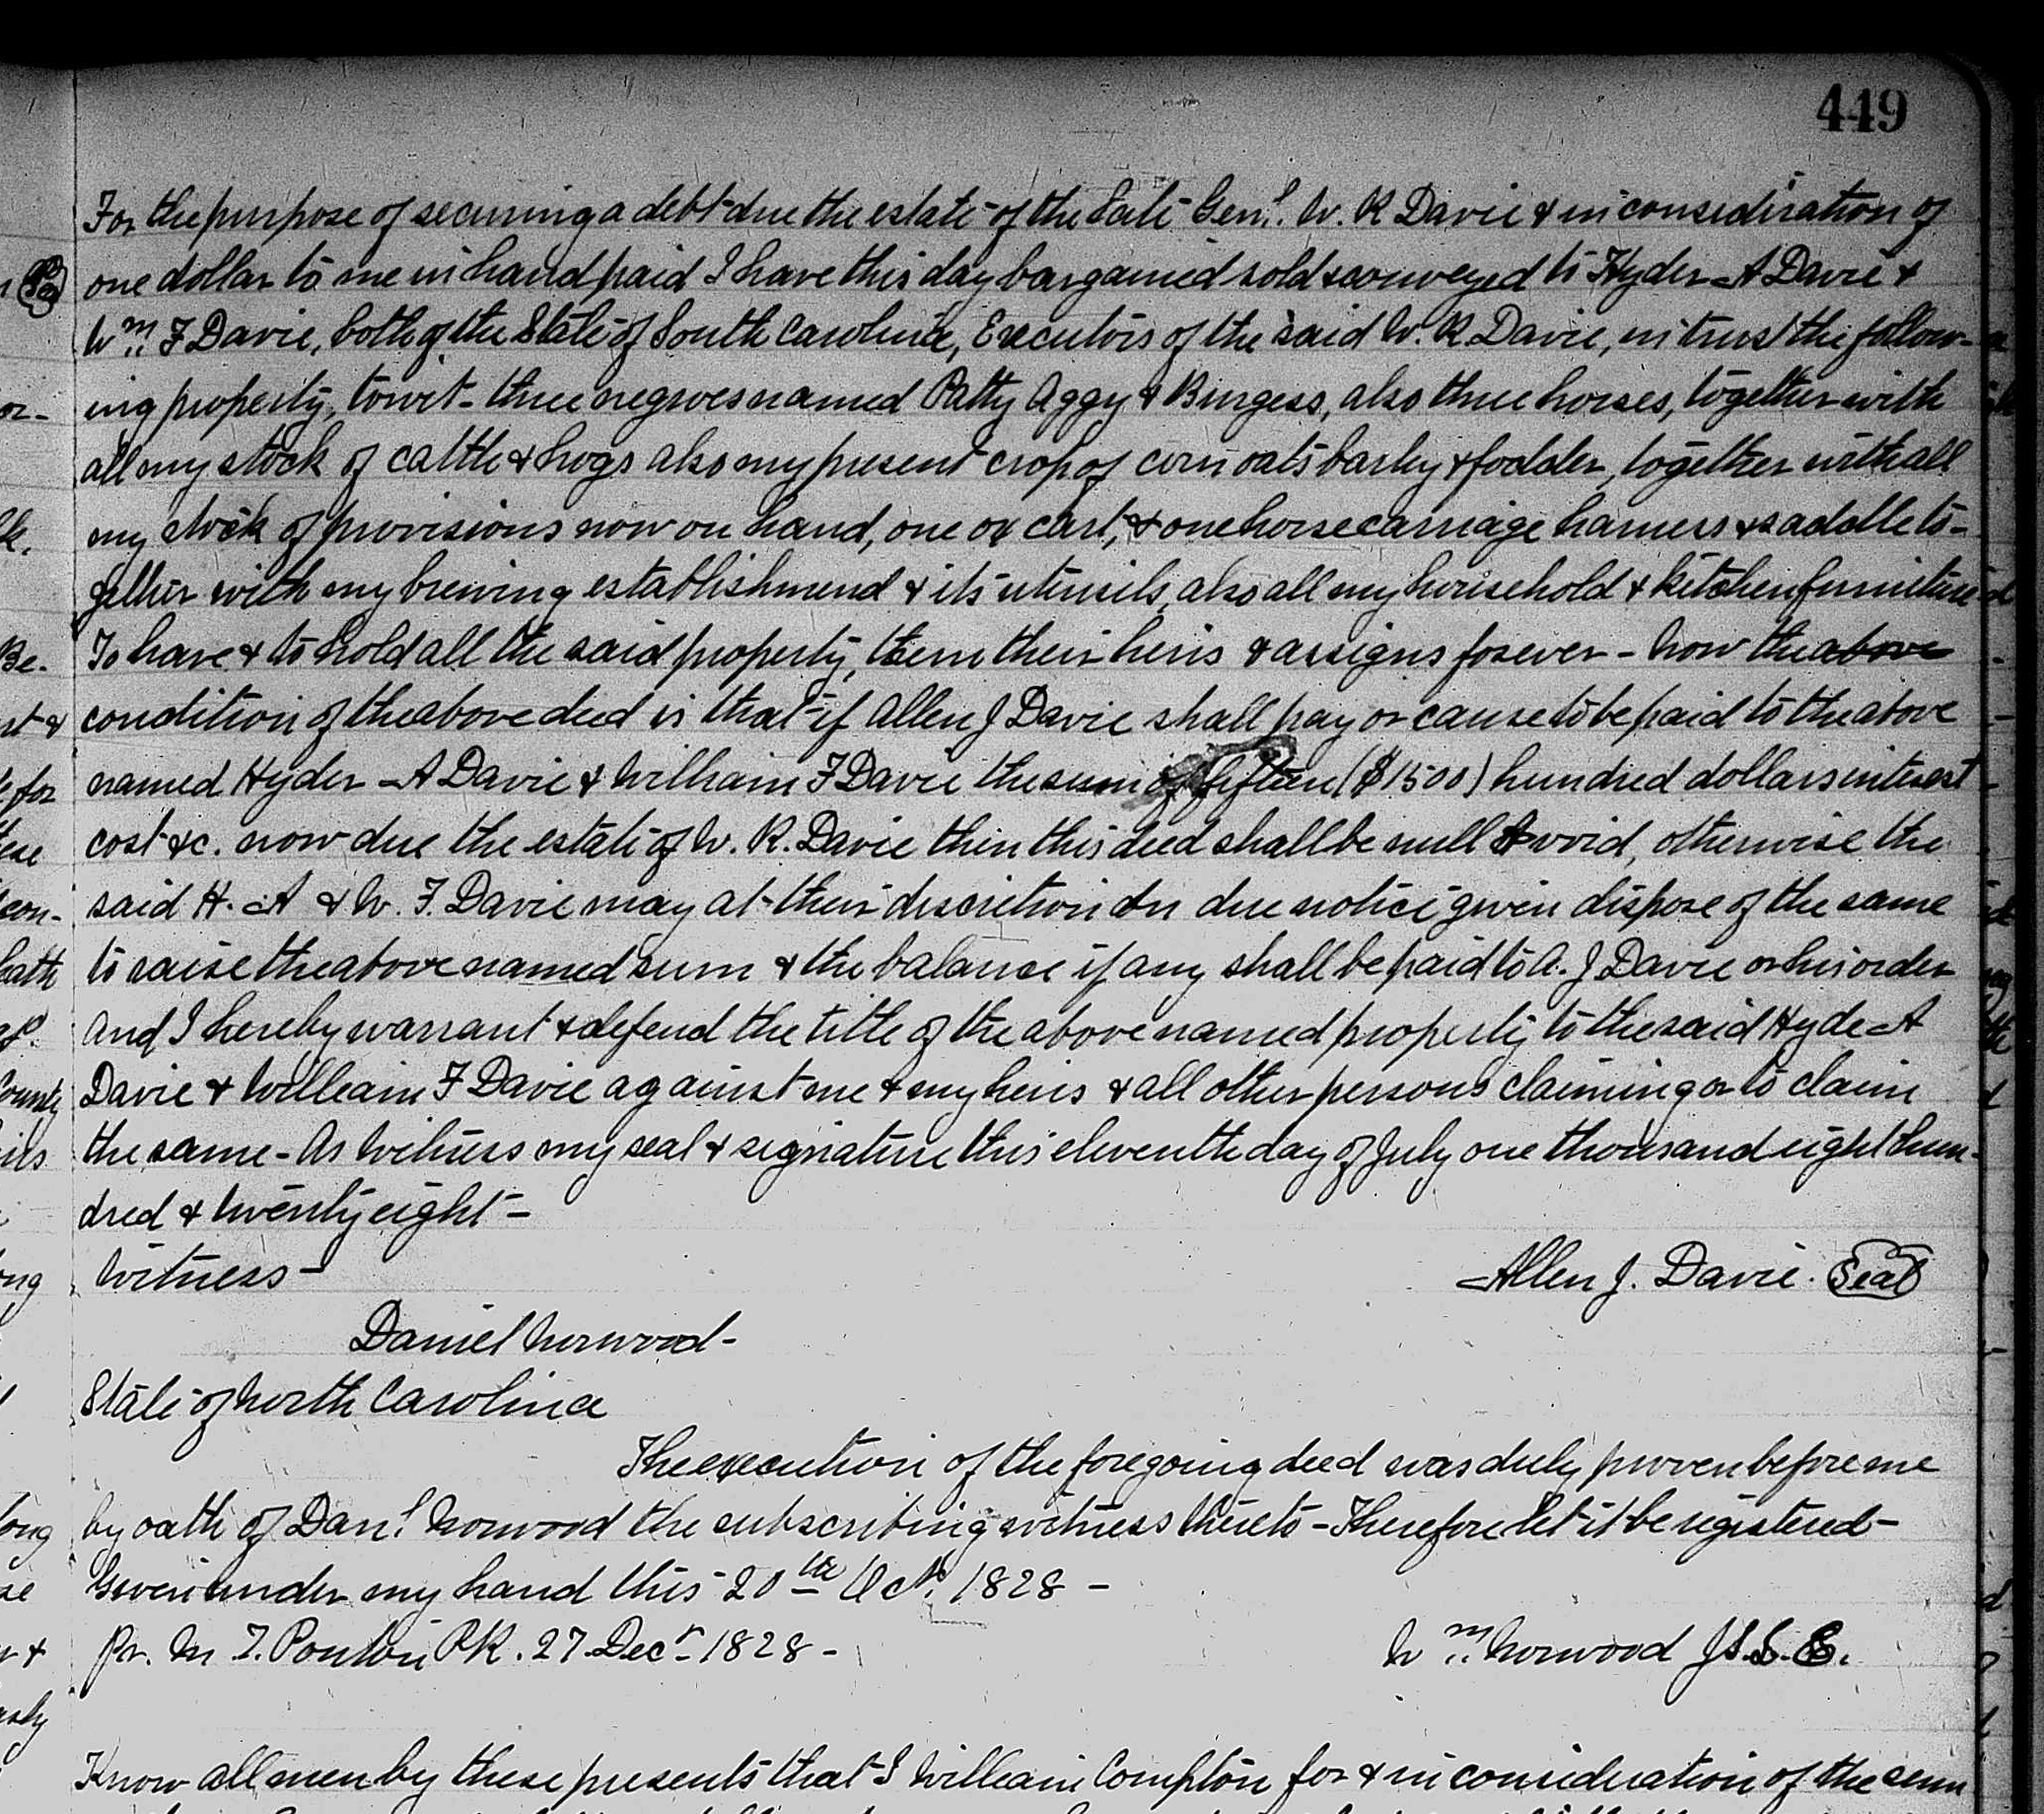 449
For the purpose of securing a debt due the estate of the late Genl. W. R Davie & in consideration of
one dollar to me in hand paid I have this day bargained sold & conveyed to Hyder A Davie &
Wm. F Davie, both of the State of South Carolina, Executors of the said W. R Davie, in trust the follow-
ing property, towit- three negroes named Patty Aggy & Burgess, also three horses, together with
all my stock of cattle & hogs also my present crop of corn oats barley & fodder, together with all
my stock of provisions now on hand, one ox cart, & one horse carriage harness & saddle to-
gether with my brewing establishmend & its utensils, also all my household & kitchen furniture
To have & to hold all the said property, them their heirs & assigns forever - Now the above
condition of the above deed is that if Allen J Davie shall pay or cause to be paid to the above
named Hyder A Davie & William F Davie the sum of fifteen ($1500) hundred dollars interest
cost &c. now due the estate of W. R. Davie then this deed shall be null & void, otherwise the
said H. A & W. F. Davie may at their discretion on due notice given dispose of the same
to raise the above named sum & the balance if any shall be paid to A. J Davie or his order
And I hereby warrant & defend the title of the above named property to the said Hyde A
Davie & William F Davie against me & my heirs & all other persons claiming or to claim
the same - As Witness my seal & signature this eleventh day of July one thousand eight hun-
dred & twenty eight -
Witness - Allen J. Davie. Seal
Daniel Norwood -
State of North Carolina
The execution of the foregoing deed was duly proven before me
by oath of Danl. Norwood the subscribing witness thereto - Therefore let it be registered -
Given under my hand this 20th Oct. 1828 -
Pr. M. T. Ponton PR. 27 Decr 1828 - Wm. Norwood J.S.L.E.
Know all men by these presents that I William Compton for & in consideration of the sum